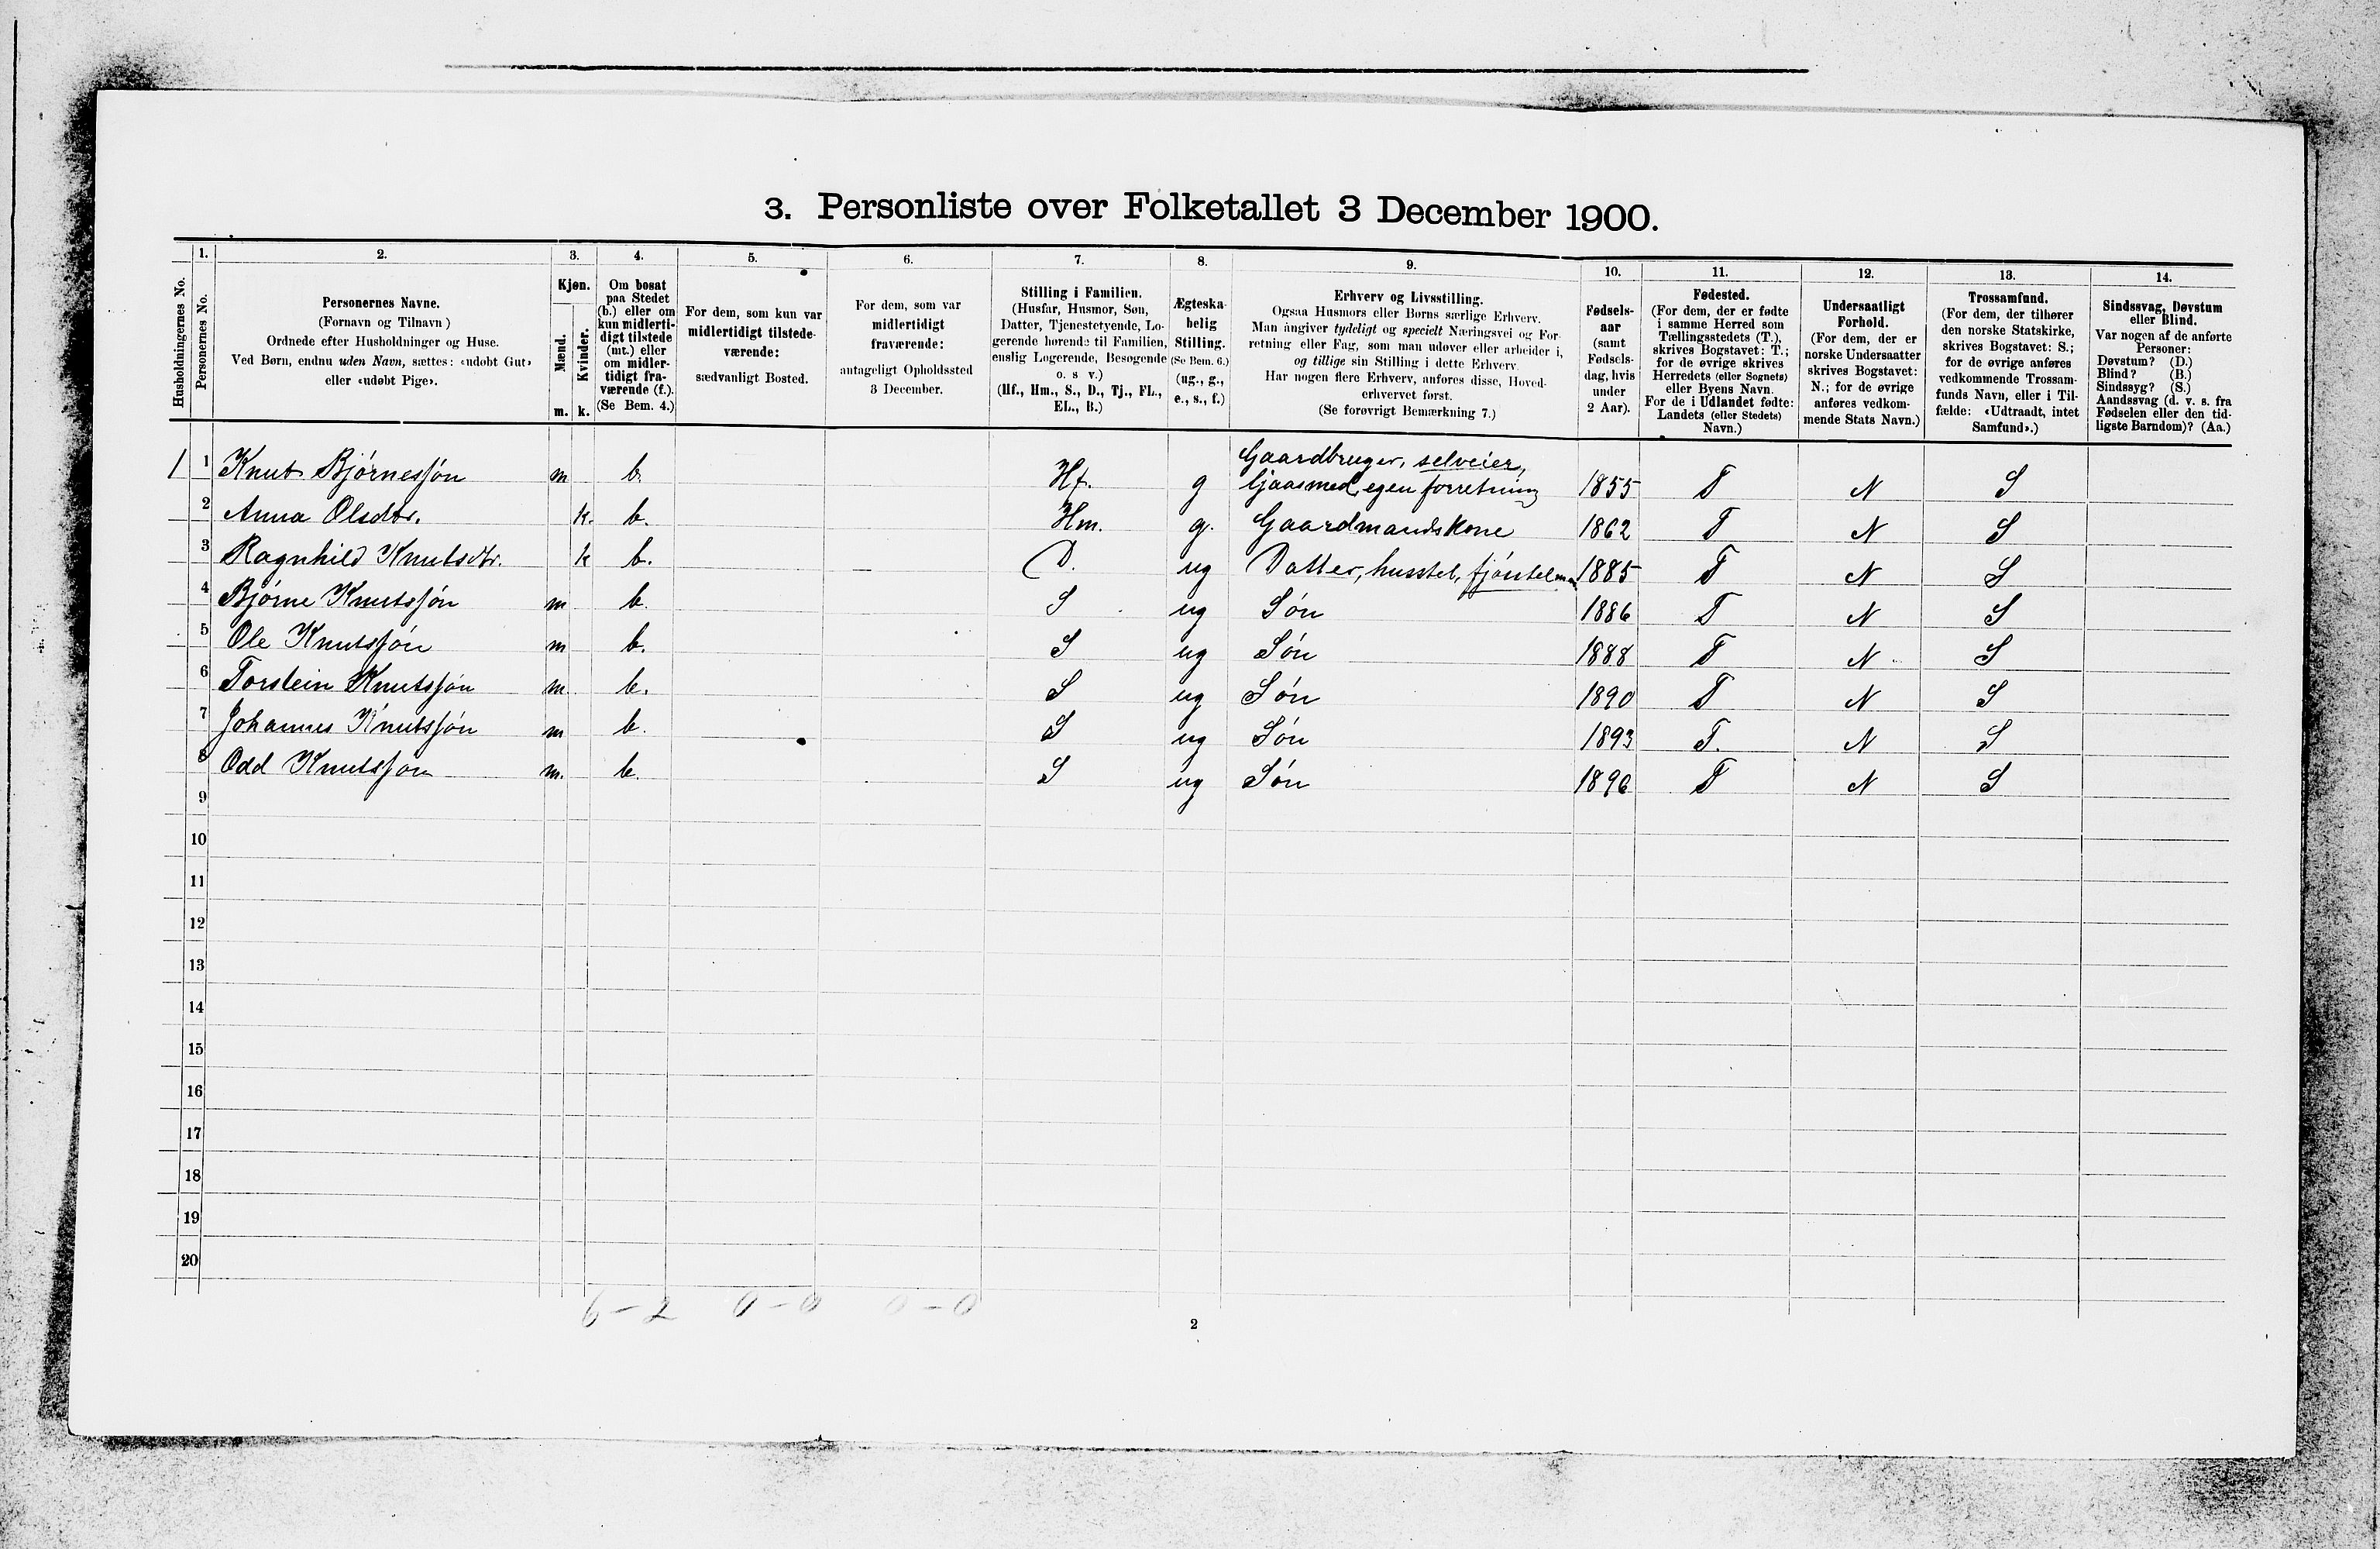 3. Personliste over Folketallet 3 December 1900.
1. 2. 3. 4. 5. 6. 7. 8. 9. 10. 11. 12. 13. 14.
Husholdningernes No.
Personernes No.
Personernes Navne.
(Fornavn og Tilnavn)
Ordnede efter Husholdninger og Huse.
Ved Børn, endnu uden Navn, sættes: «udøbt Gut»
eller «udøbt Pige».
Kjøn.
Mænd.
Kvinder.
m. k.
Om bosat
paa Stedet
(b.) eller om
kun midlerti-
digt tilstede
(mt.) eller
om midler-
tidigt fra-
værende (f.).
(Se Bem. 4.)
For dem, som kun var
midlertidigt tilstede-
værende:
sædvanligt Bosted.
For dem, som var
midlertidigt
fraværende:
antageligt Opholdssted
3 December.
Stilling i Familien.
(Husfar, Husmor, Søn,
Datter, Tjenestetyende, Lo-
gerende hørende til Familien,
enslig Logerende, Besøgende
o. s v.)
(Hf., Hm., S., D., Tj., FL.,
EL., B.)
Ægteska-
belig
Stilling.
(Se Bem. 6.)
(ug., g.,
e., s., f.)
Erhverv og Livsstilling.
Ogsaa Husmors eller Børns særlige Erhverv.
Man angiver tydeligt og specielt Næringsvei og For-
retning eller Fag, som man udøver eller arbeider i,
og tillige sin Stilling i dette Erhverv.
Har nogen flere Erhverv, anføres disse, Hoved-
erhvervet først.
(Se forøvrigt Bemærkning 7.)
Fødsels-
aar
(samt
Fødsels-
dag, hvis
under
2 Aar).
Fødested.
(For dem, der er fødte
i samme Herred som
Tællingsstedets (T.),
skrives Bogstavet: T.;
for de øvrige skrives
Herredets (eller Sognets)
eller Byens Navn.
For de i Udlandet fødte:
Landets (eller Stedets)
Navn.)
Undersaatligt
Forhold.
(For dem, der er
norske Undersaatter
skrives Bogstavet:
N.; for de øvrige
anføres vedkom-
mende Stats Navn.)
Trossamfund.
(For dem, der tilhører
den norske Statskirke,
skrives Bogstavet: S.;
for de øvrige anføres
vedkommende Trossam-
funds Navn, eller i Til-
fælde: «Udtraadt, intet
Samfund».)
Sindssvag, Døvstum
eller Blind.
Var nogen af de anførte
Personer:
Døvstum? (D.)
Blind? (B.)
Sindssyg? (S.)
Aandssvag (d. v. s. fra
Fødselen eller den tid-
ligste Barndom)? (Aa.)
Gaardbruger, selveier,
1 1 Knut Bjørnesøn m b. Hf. g med egen forretning 1855 T N S
2 Anna Olsdtr. k. b. Hm. g. Gaardmandskone 1862 T N S
3 Ragnhild Knutsdtr. k b. D. ug Datter, husstel, 1885 T N S
4 Bjørne Knutssøn m b. S ug Søn 1886 T N S
5 Ole Knutssøn m b. S ug Søn 1888 T N S
6 Torstein Knutssøn m b. S ug Søn 1890 T N S
7 Johannes Knutssøn m b. S ug Søn 1893 T. N S
8 Odd Knutssøn m. b. S ug Søn 1896 T N S
9
10
11
12
13
14
15
16
17
18
19
20
6 – 2 0 – 0 0 – 0
2